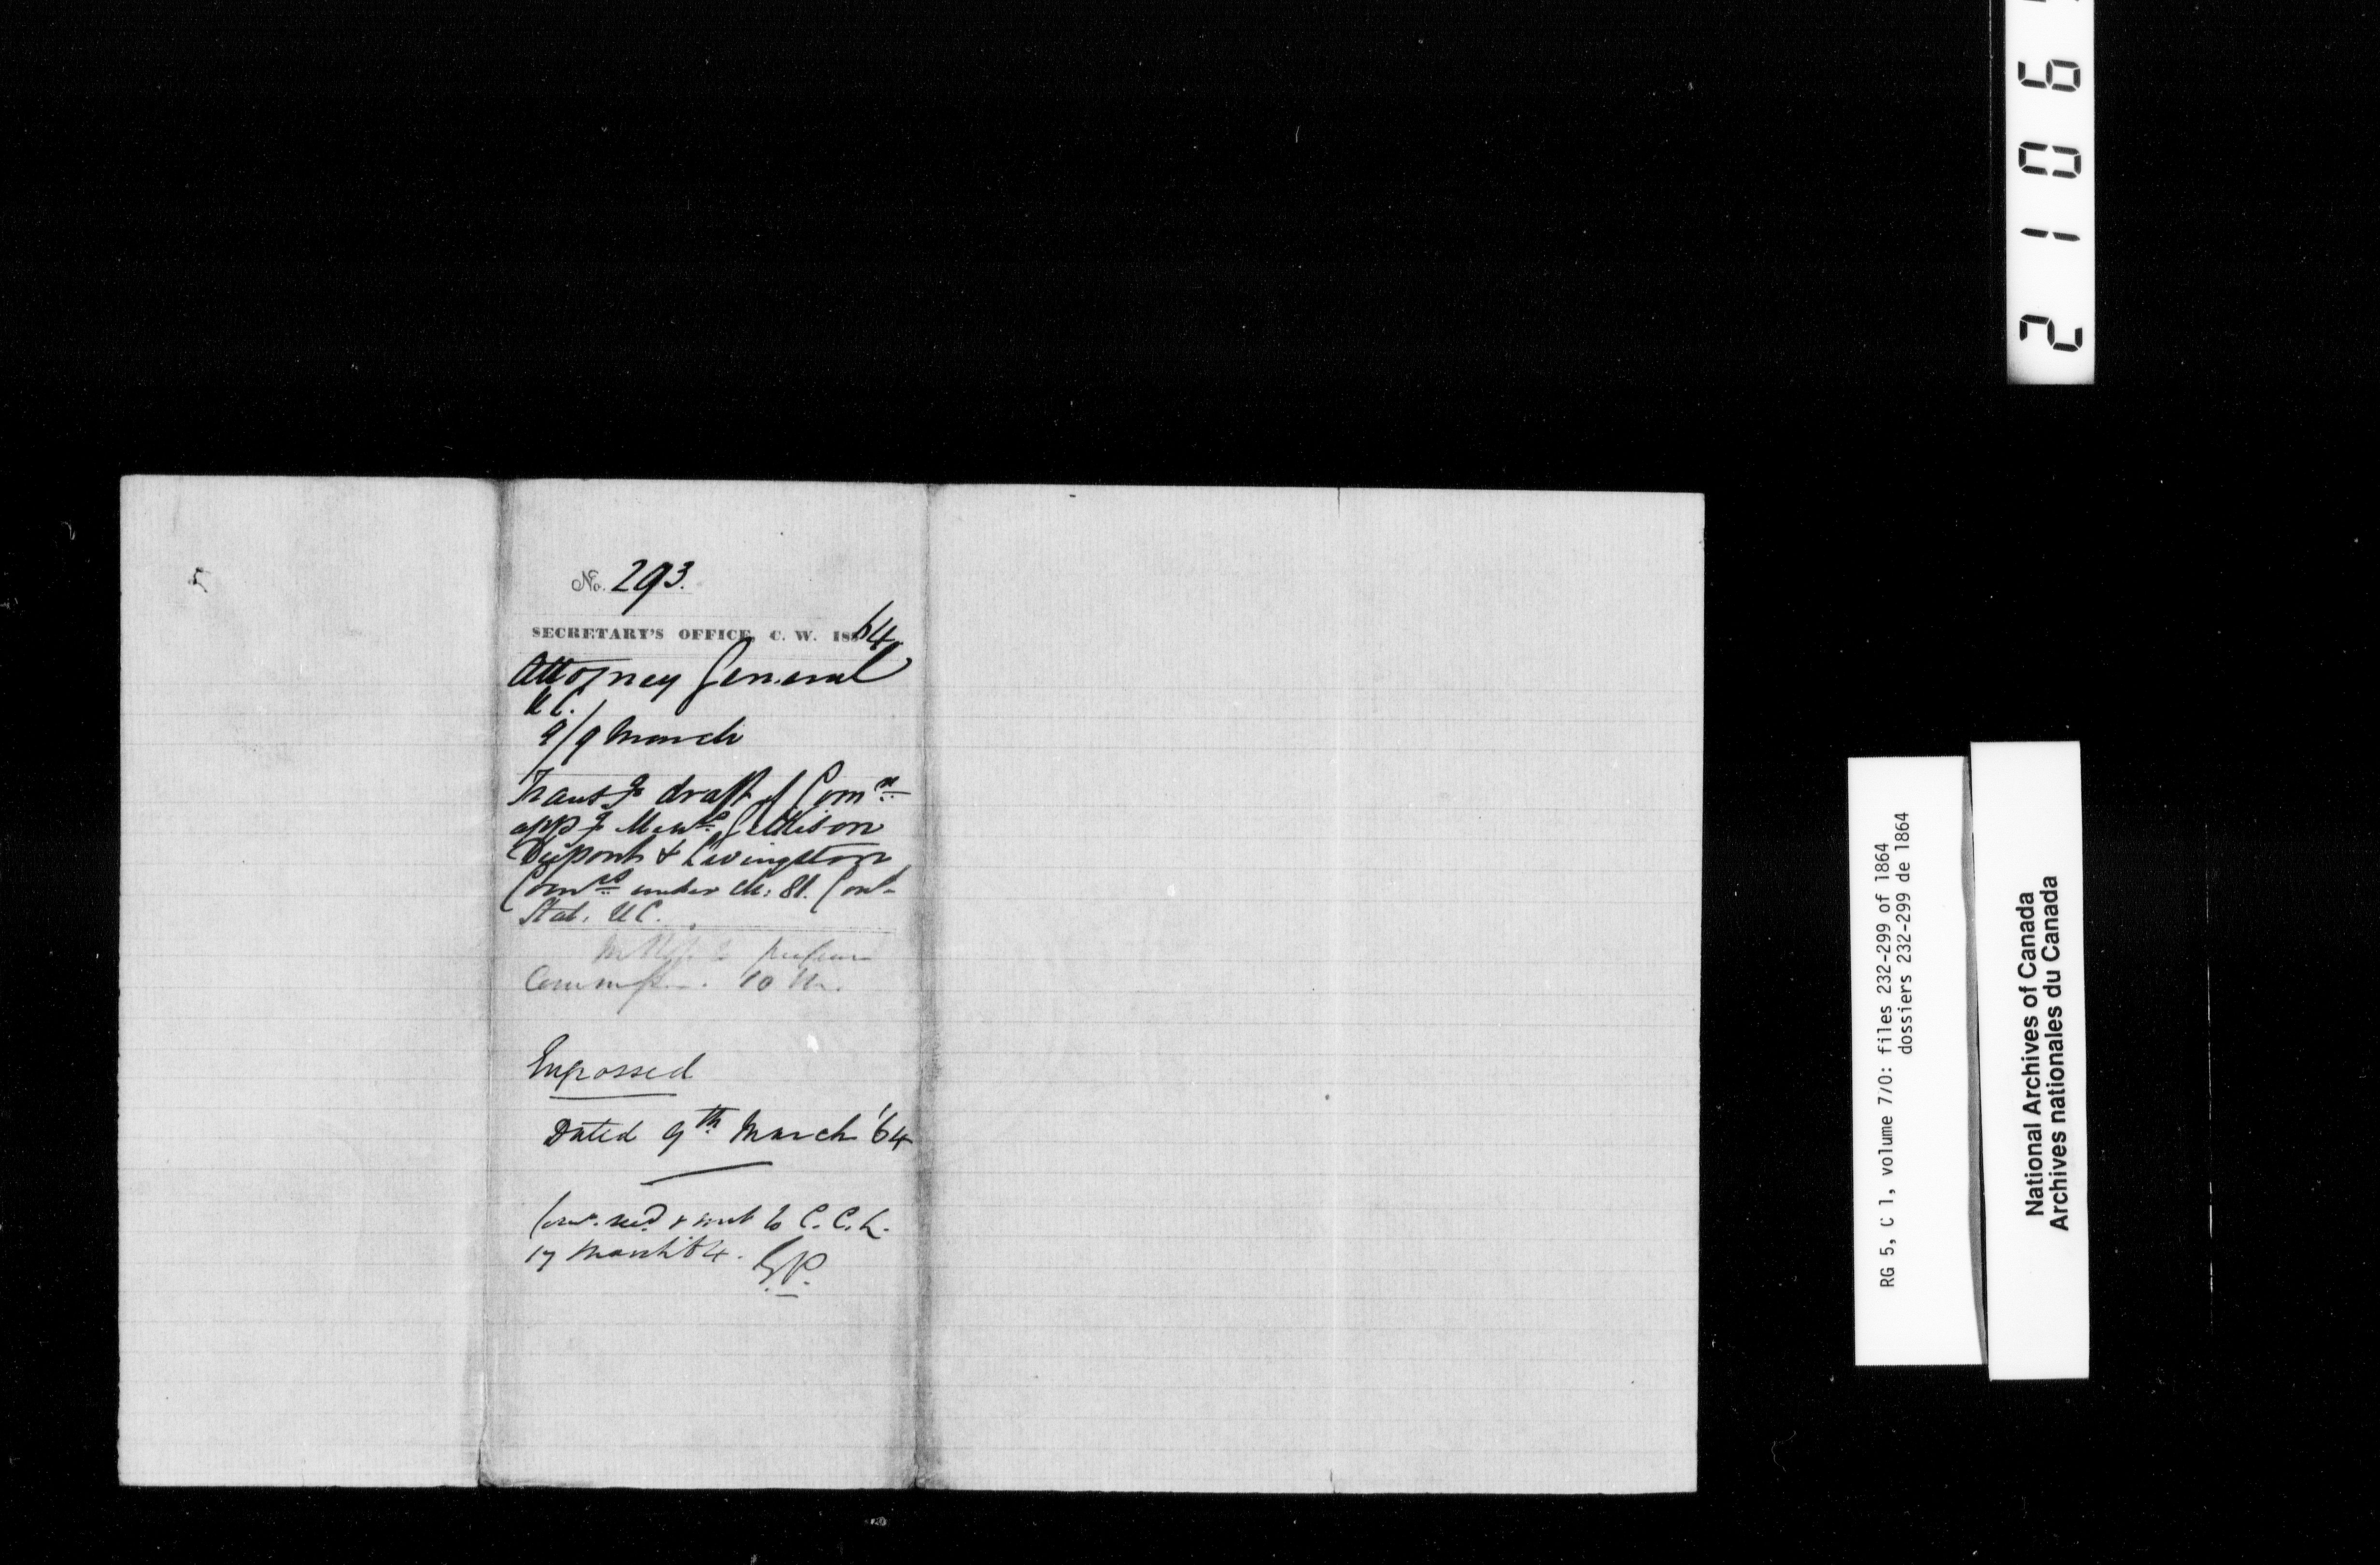 No. 293.
SECRETARY'S OFFICE, C. W. 18564.
Attorney General
U C.
9/9 March
Transg draft of Comn
appg Messrs
Dupont & Livingston
Comrs under Ch: 81. Con.
Stat. U C.
to prepare
Commissn. 10 M.
Engrossed
Dated 9th March '64
recd & sent to C. C. L.
17 March '64. G.P.
2 1 0 6
RG 5, C 1, volume 770: files 232-299 of 1864
dossiers 232-299 de 1864
National Archives of Canada
Archives nationales du Canada